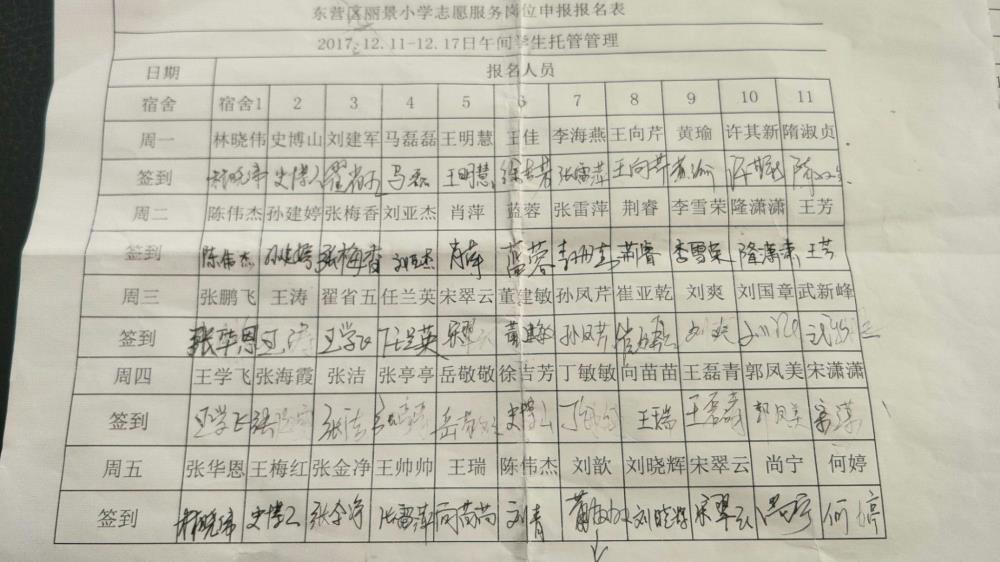 东营区丽景小学志愿服务岗位申报报名表
2017.12.11-12.17日午间学生托管管理
日期 报名人员
宿舍 宿舍1 2 3 4 5 6 7 8 9 10 11
周一 林晓伟 史博山 刘建军 马磊磊 王明慧 王佳 李海燕 王向芹 黄瑜 许其新 隋淑贞
签到 林晓伟 史博山 翟省五 马磊 王明慧 徐吉芳 张雷萍 王向芹 黄瑜
周二 陈伟杰 孙建婷 张梅香 刘亚杰 肖萍 蓝蓉 张雷萍 荆睿 李雪荣 隆潇潇 王芳
签到 陈伟杰 孙建婷 张梅香 刘亚杰 肖萍 蓝蓉 荆睿 李雪荣 隆潇潇 王芳
周三 张鹏飞 王涛 翟省五 任兰英 宋翠云 董建敏 孙凤芹 崔亚乾 刘爽 刘国章 武新峰
签到 张华恩 王涛 王学飞 任兰英 宋翠云 董建敏 孙凤芹 刘爽
周四 王学飞 张海霞 张洁 张亭亭 岳敬敬 徐吉芳 丁敏敏 向苗苗 王磊青 郭凤美 宋潇潇
签到 王学飞 张洁 岳敬敬 史博山 王瑞 王磊青 郭凤美
周五 张华恩 王梅红 张金净 王帅帅 王瑞 陈伟杰 刘歆 刘晓辉 宋翠云 尚宁 何婷
签到 林晓伟 史博山 张金净 张雷萍 向苗苗 刘晓辉 宋翠云 尚宁 何婷